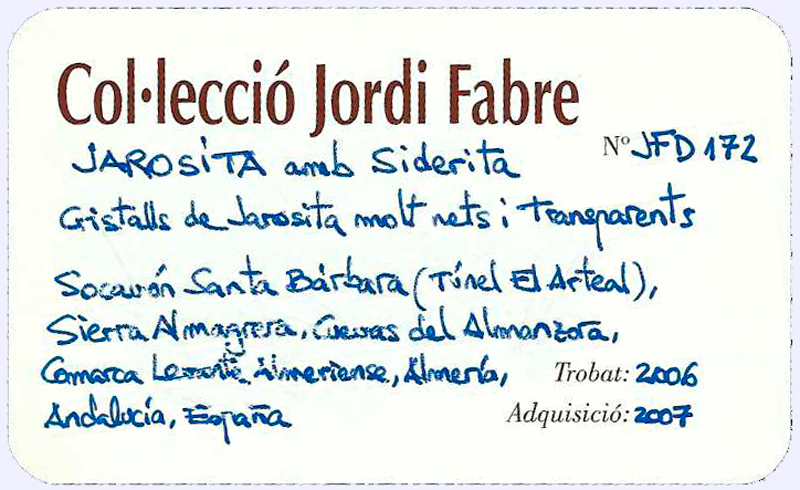 Col·lecció Jordi Fabre
Nº JFD 172
JAROSITA amb Siderita
Cristalls de Jarosita molt nets i transparents
Socavón Santa Bárbara (Túnel El Arteal),
Sierra Almagrera, Cuevas del Almanzora,
Comarca Levante Almeriense, Almería,
Trobat: 2006
Andalucía, España
Adquisició: 2007